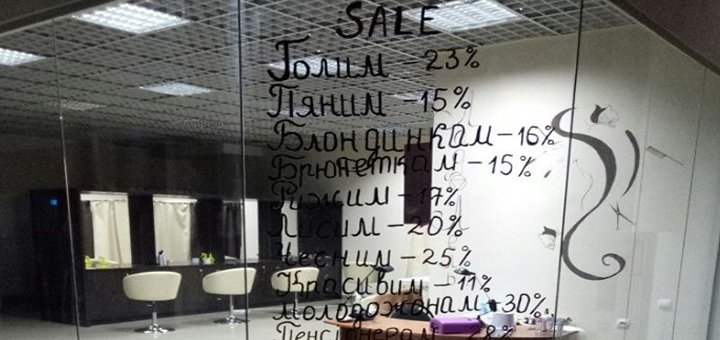 SALE
Голим - 23%
Пяним - 15%
Блондинкам - 16%
Брюнеткам - 15%
Рижим - 17%
Лисим - 20%
Чесним - 25%
Красивим - 11%
Молодожонам - 30%
Пенсіонерам - 28%